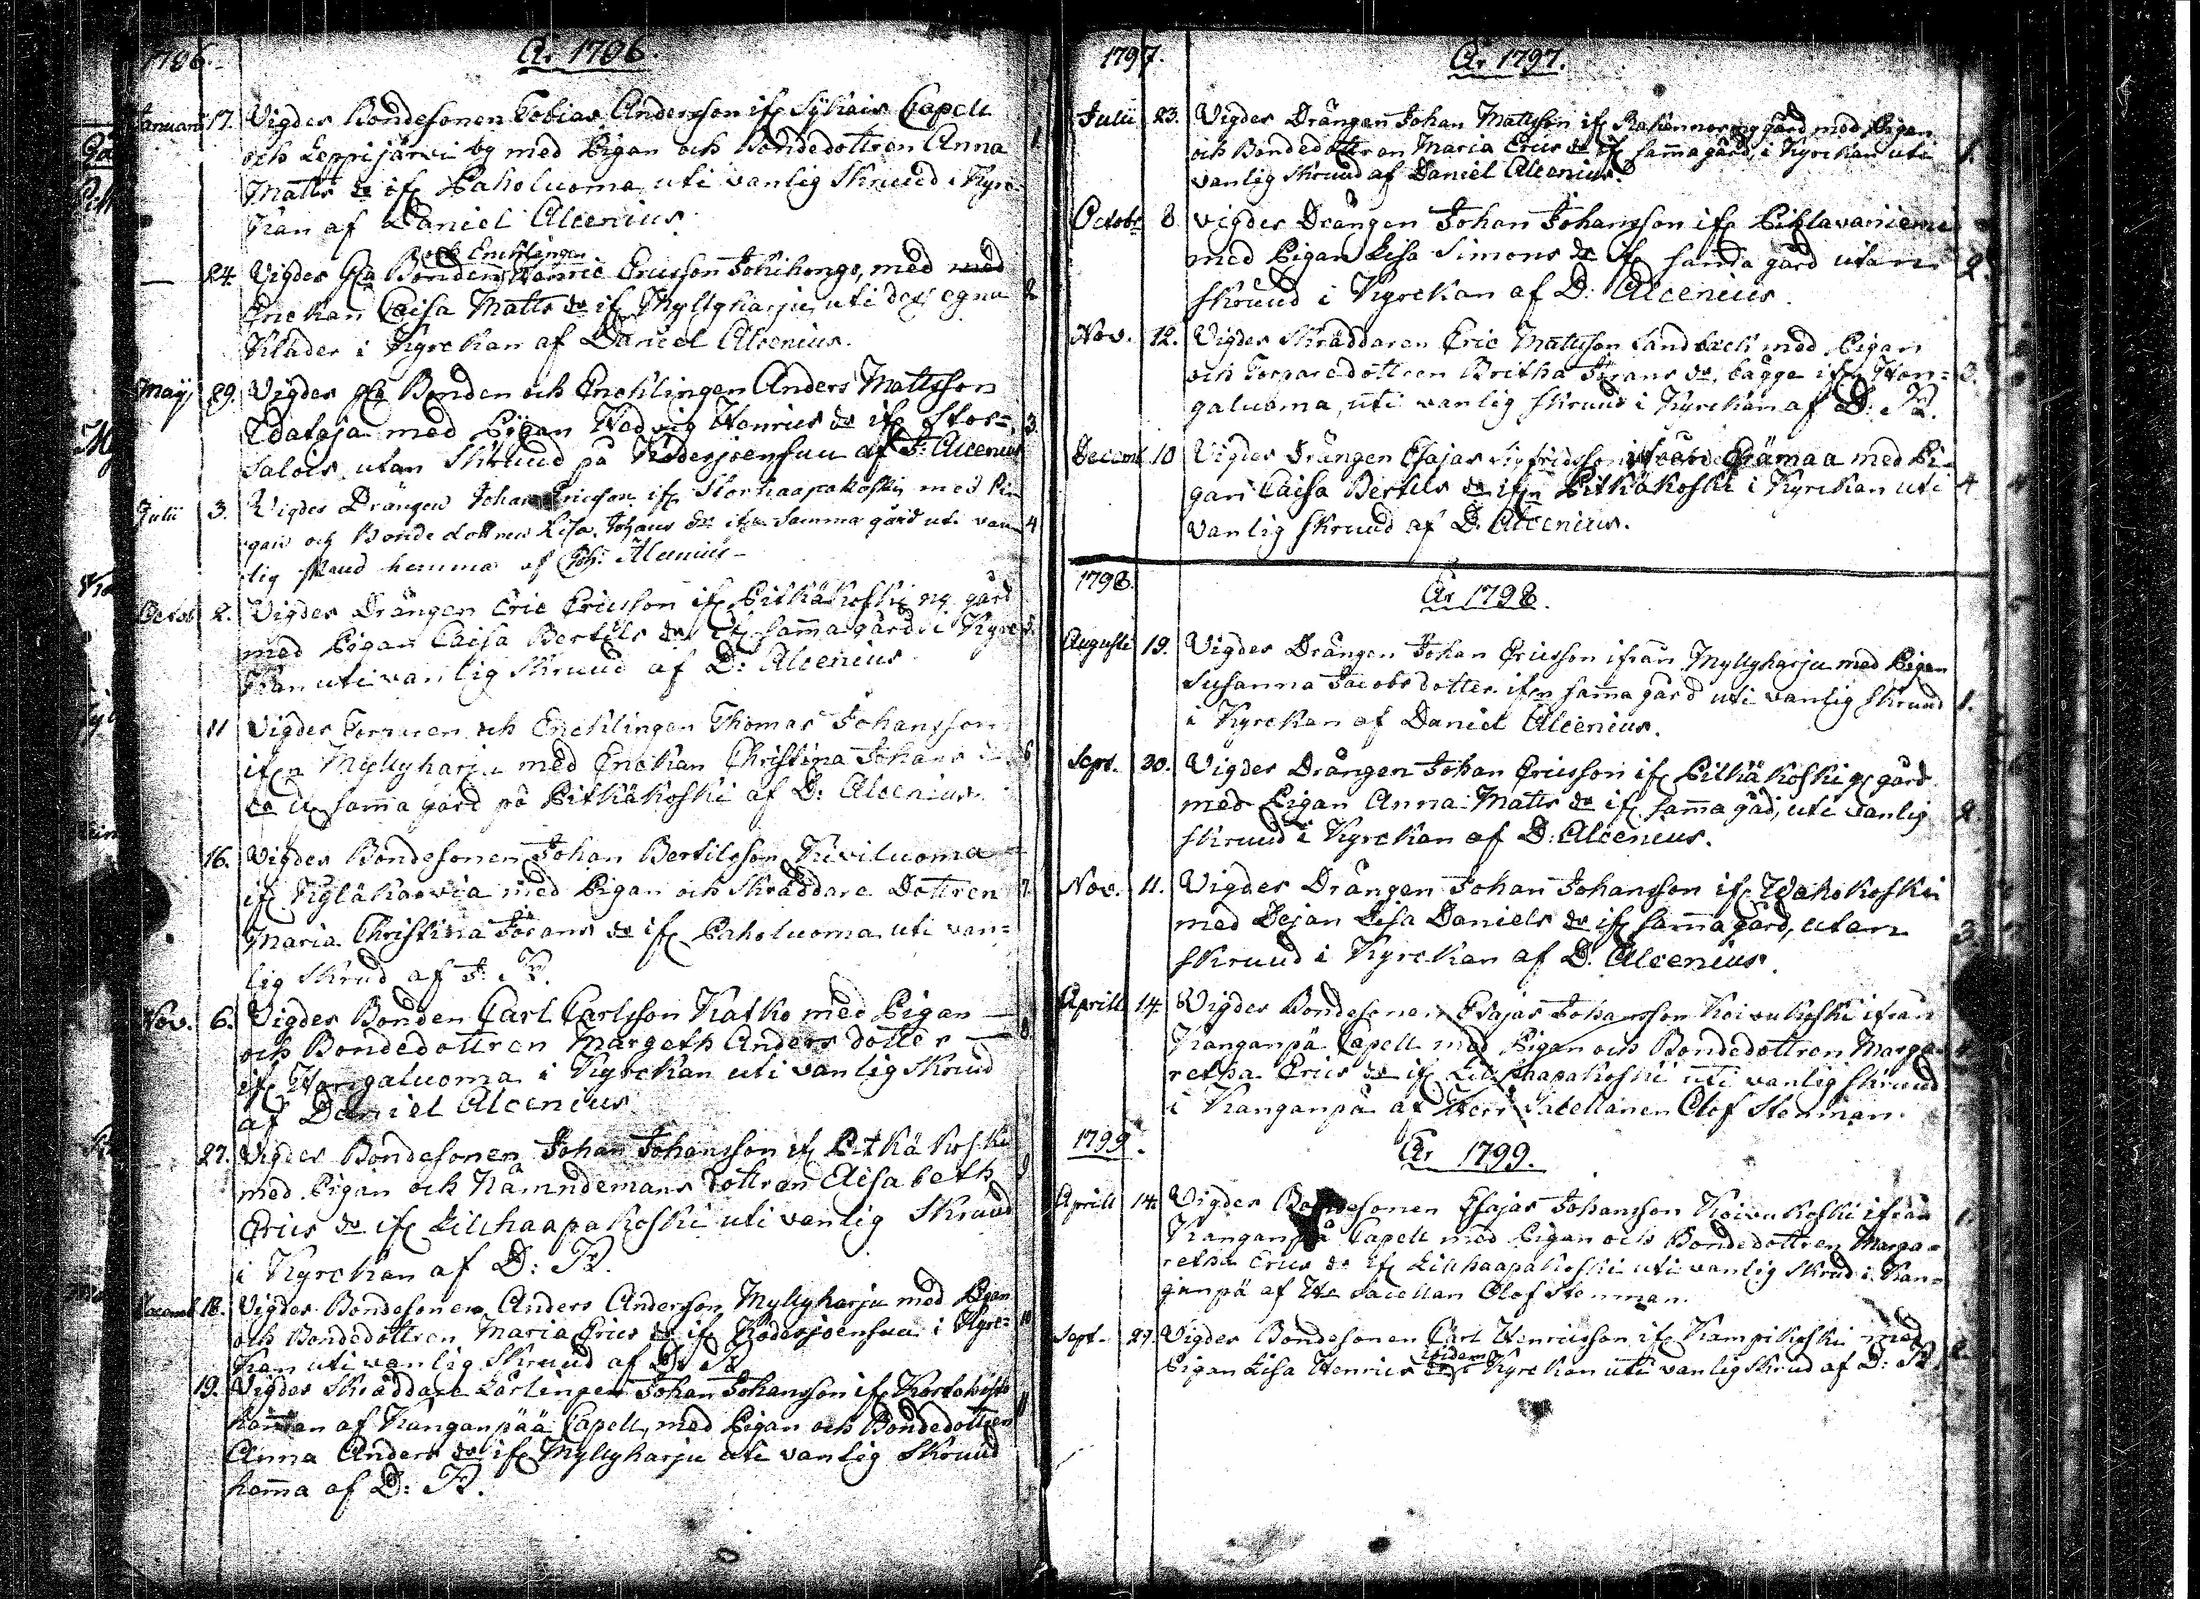 1796. År 1796.
Januarii 17. Vigdes Bondesonen Tobias Andersson ifr Sÿkais Capell 1
och Leppijärvi by med Pigan och Bondedottren Anna
Matts dr ifr Paholuoma uti vanlig Skruud i Kyrc-
kan af Daniel Alcenius.
och Encklingen
— 24. Vigdes Bonden Henric Ericsson Jokihongo, med
Enckan Caisa Matts dr ifr Myllyharju, uti des egna 2
Kläder i Kyrckan af Daniel Alcenius.
Maÿ 29. Vigdes Bonden och Encklingen Anders Mattsson
med Pigan Hedvig Henrics dr ifr Stor- 3.
Salois utan Skruud på Kodesjoensuu af J: Alcenius
Julii 3. Vigdes Drängen Johan Ericsson ifr Storhaapakoski med Pi-
gan och Bondedottren Lisa Johans dr ifr samma gård uti van- 4
lig skrud hemma af Joh: Alcenius
Octob 2. Vigdes Drängen Eric Ericsson ifr Pitkäkoski ng gård
med Pigan Caisa Bertils dr ifr samma gård i Kyrc- 5.
kan uti vanlig Skruud af D: Alcenius
11 Vigdes Torparen och Encklingen Thomas Johansson
ifrn Myllyharju med Enckan Christina Johans 6
dr ifr samma gård på Pitkäkoski af D: Alcenius.
16. Vigdes Bondesonen Johan Bertilsson Kiviluoma
ifr Kyläkarvia med Pigan och Skräddare Dottren 7.
Maria Christina Jörans dr ifr Paholuoma uti van-
lig Skrud af J: K.
Nov. 6. Vigdes Bonden Carl Carlsson Katko med Pigan —
och Bondedottren Margeth Anders dotter — 8
ifr Hongaluoma i Kyrckan uti vanlig Skrud
af Daniel Alcenius
27. Vigdes Bondesonen Johan Johansson ifr Pitkäkoski
med Pigan och Nämndemans Dottren Elisabeth 9
Erics dr ifr Lillhaapakoski uti vanlig Skruud
i Kyrckan af D: K.
Decemb 18. Vigdes Bondesonen Anders Andersson Myllyharju med Pigan
och Bondedottren Maria Erics dr ifr Kodesjoensuu i Kyrc- 10
kan uti vanlig Skruud af D: K
19. Vigdes Skräddare Lärlingen Johan Johansson ifr
af Kanganpää Capell, med Pigan och Bondedottren 11
Anna Anders dr ifr Myllyharju uti vanlig Skruud
hema af D: K.
1797. År 1797.
Julii 23. Vigdes Drängen Johan Mattsson ifr ng gård med Pigan
och Bondedottren Maria Erics dr ifr sama gård, i Kyrckan uti 1.
vanlig Skruud af Daniel Alcenius.
Octobr 8 Vigdes Drängen Johan Johansson ifrn Pihlavaniemi
med Pigan Lisa Simons dr ifr sama gård utan 2.
skruud i Kyrckan af D: Alcenius.
Nov. 12. Vigdes Skräddaren Eric Mattsson Sandback med Pigan
och Torparedottren Britha Jörans dr, bägge ifrn Hon- 3.
galuoma, uti vanlig skruud i Kyrckan af D: K.
Decemb 10 Vigdes Drängen Esajas Sigfridsson ifrån Erämaa med Pi-
gan Caisa Bertils dr ifrn Pitkäkoski i Kyrckan uti 4
vanlig skruud af D. Alcenius.
1798. År 1798.
Augusti 19. Vigdes Drängen Johan Ericsson ifrån Myllyharju med Pigan
Susanna Jacobsdotter ifrn sama gård uti vanlig Skruud 1.
i Kyrckan af Daniel Alcenius.
Sept. 30. Vigdes Drängen Johan Ericsson ifr Pitkäkoski gård
med Pigan Anna Matts dr ifr sama gåd, uti vanlig 2.
skruud i Kyrckan af D: Alcenius.
Nov. 11. Vigdes Drängen Johan Johansson ifr Wahokoski
med Lisa Daniels dr ifr sama gård, utan 3.
skruud i Kyrckan af D. Alcenius.
Aprill 14. Vigdes Bondesonen Esajas Johansson Koivukoski ifrån
Kanganpä Capell med Pigan och Bondedottren Marga-
retha Erics dr ifr Lillhaapakoski uti vanlig skruud
i Kanganpä af Herr Sacellanen Olof Stenman.
1799. År 1799.
Aprill 14. Vigdes Bondesonen Esajas Johansson Koivukoski ifrån 1.
Kanganpä Capell med Pigan och Bondedottren Marga-
retha Erics dr ifr Lillhaapakoski uti vanlig Skrud i Kan-
ganpä af Hr Sacellan Olof Stenman.
Sept. 29. Vigdes Bondesonen Carl Henricsson ifr Kampikoski med 2.
ibidem
Pigan Lisa Henrics dr i Kyrckan uti vanlig skrud af D: K.